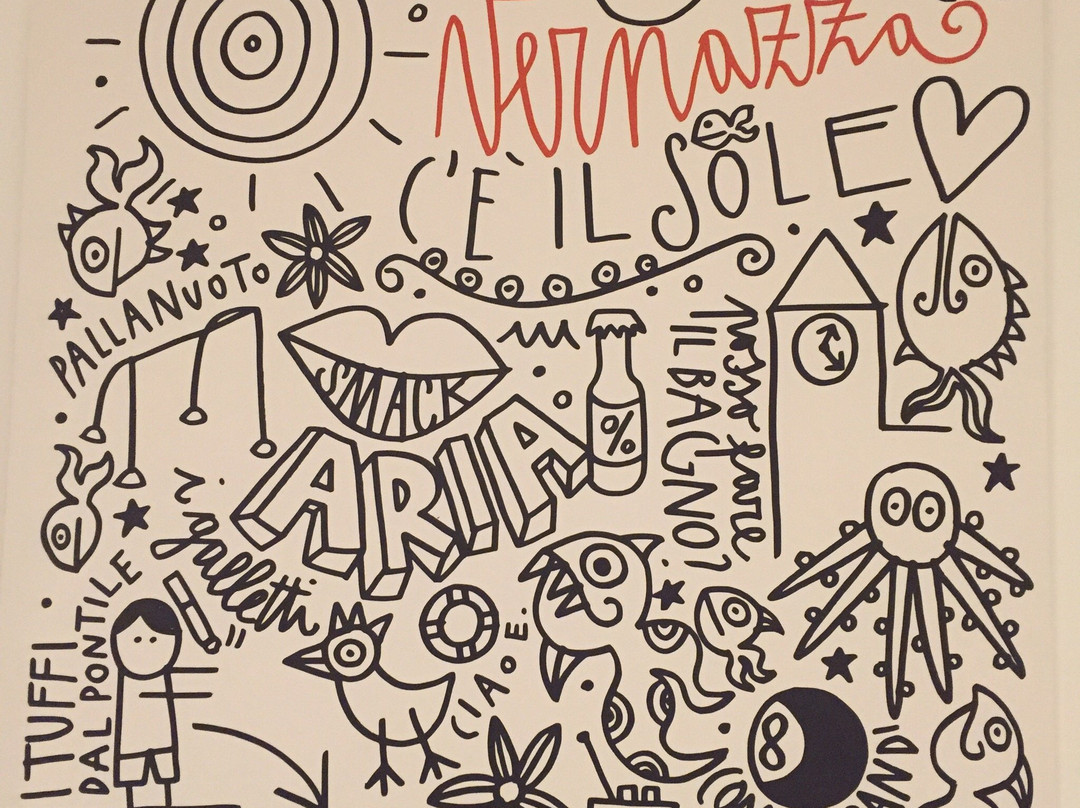 Vernazza
C'È IL SOLE
PALLANUOTO
SMACK
ARIA
%
posso fare
IL BAGNO?
i galletti
I TUFFI
DAL PONTILE
CIAO E.
8